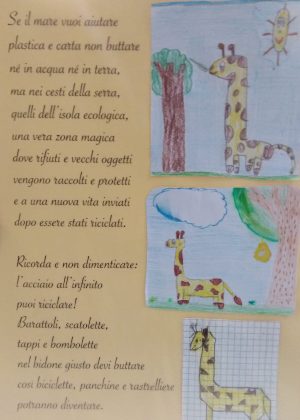 Se il mare vuoi aiutare
plastica e carta non buttare
né in acqua né in terra,
ma nei cesti della serra,
quelli dell'isola ecologica,
una vera zona magica
dove rifiuti e vecchi oggetti
vengono raccolti e protetti
e a una nuova vita inviati
dopo essere stati riciclati.
Ricorda e non dimenticare:
l'acciaio all'infinito
puoi riciclare!
Barattoli, scatolette,
tappi e bombolette
nel bidone giusto devi buttare
così biciclette, panchine e rastrelliere
potranno diventare.